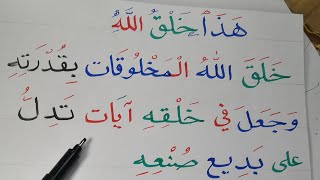 هَذَا خَلْقُ اللَّهِ
خَلَقَ اللهُ الْمَخْلُوقَات بِقُدْرَتِهِ
وَجَعَلَ فِي خَلْقِهِ آيَات تَدِلُّ
عَلى بَدِيعِ صُنْعِهِ